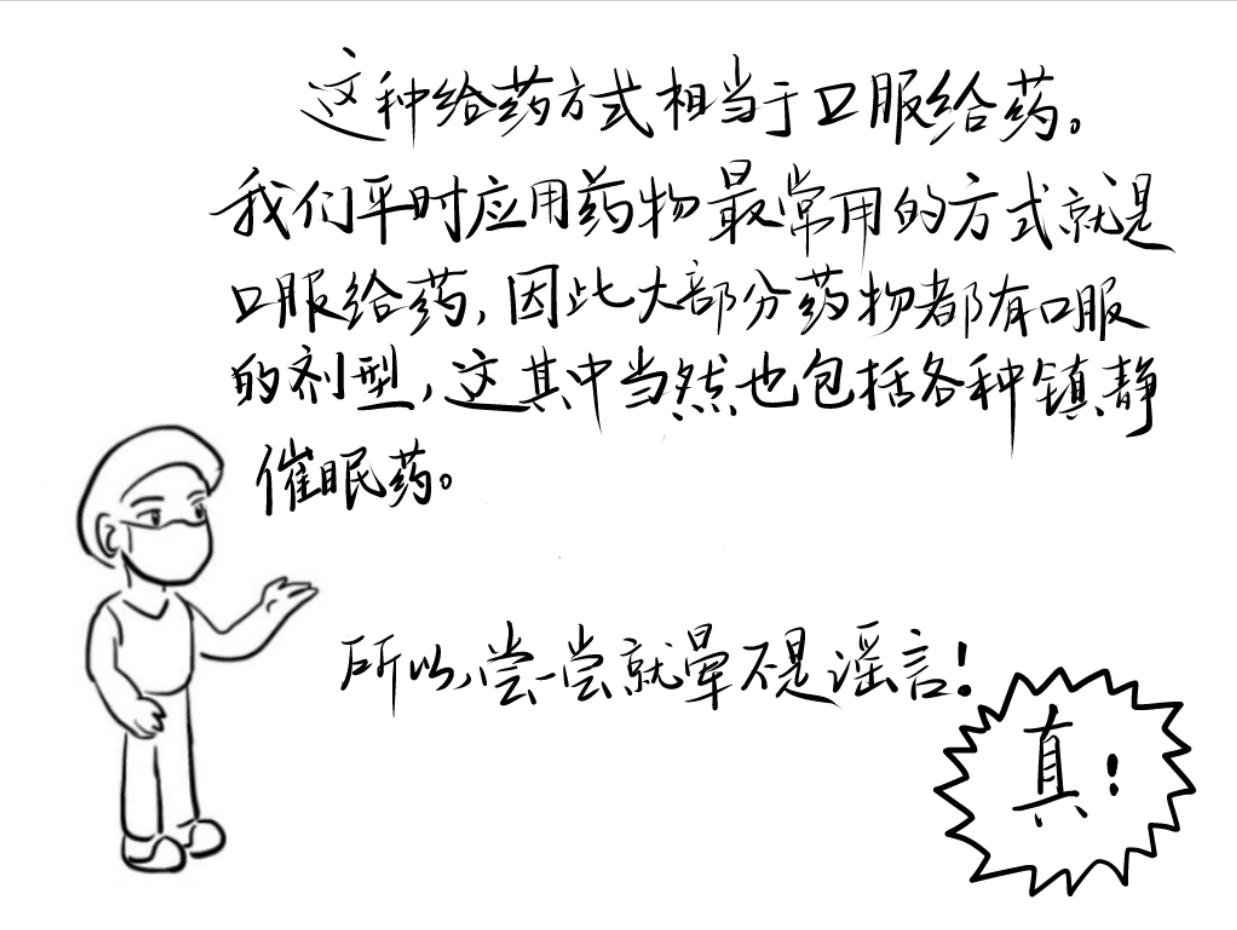 这种给药方式相当于口服给药。
我们平时应用药物最常用的方式就是
口服给药,因此大部分药物都有口服
的剂型,这其中当然也包括各种镇静
催眠药。
所以,尝一尝就晕不是谣言!
真!